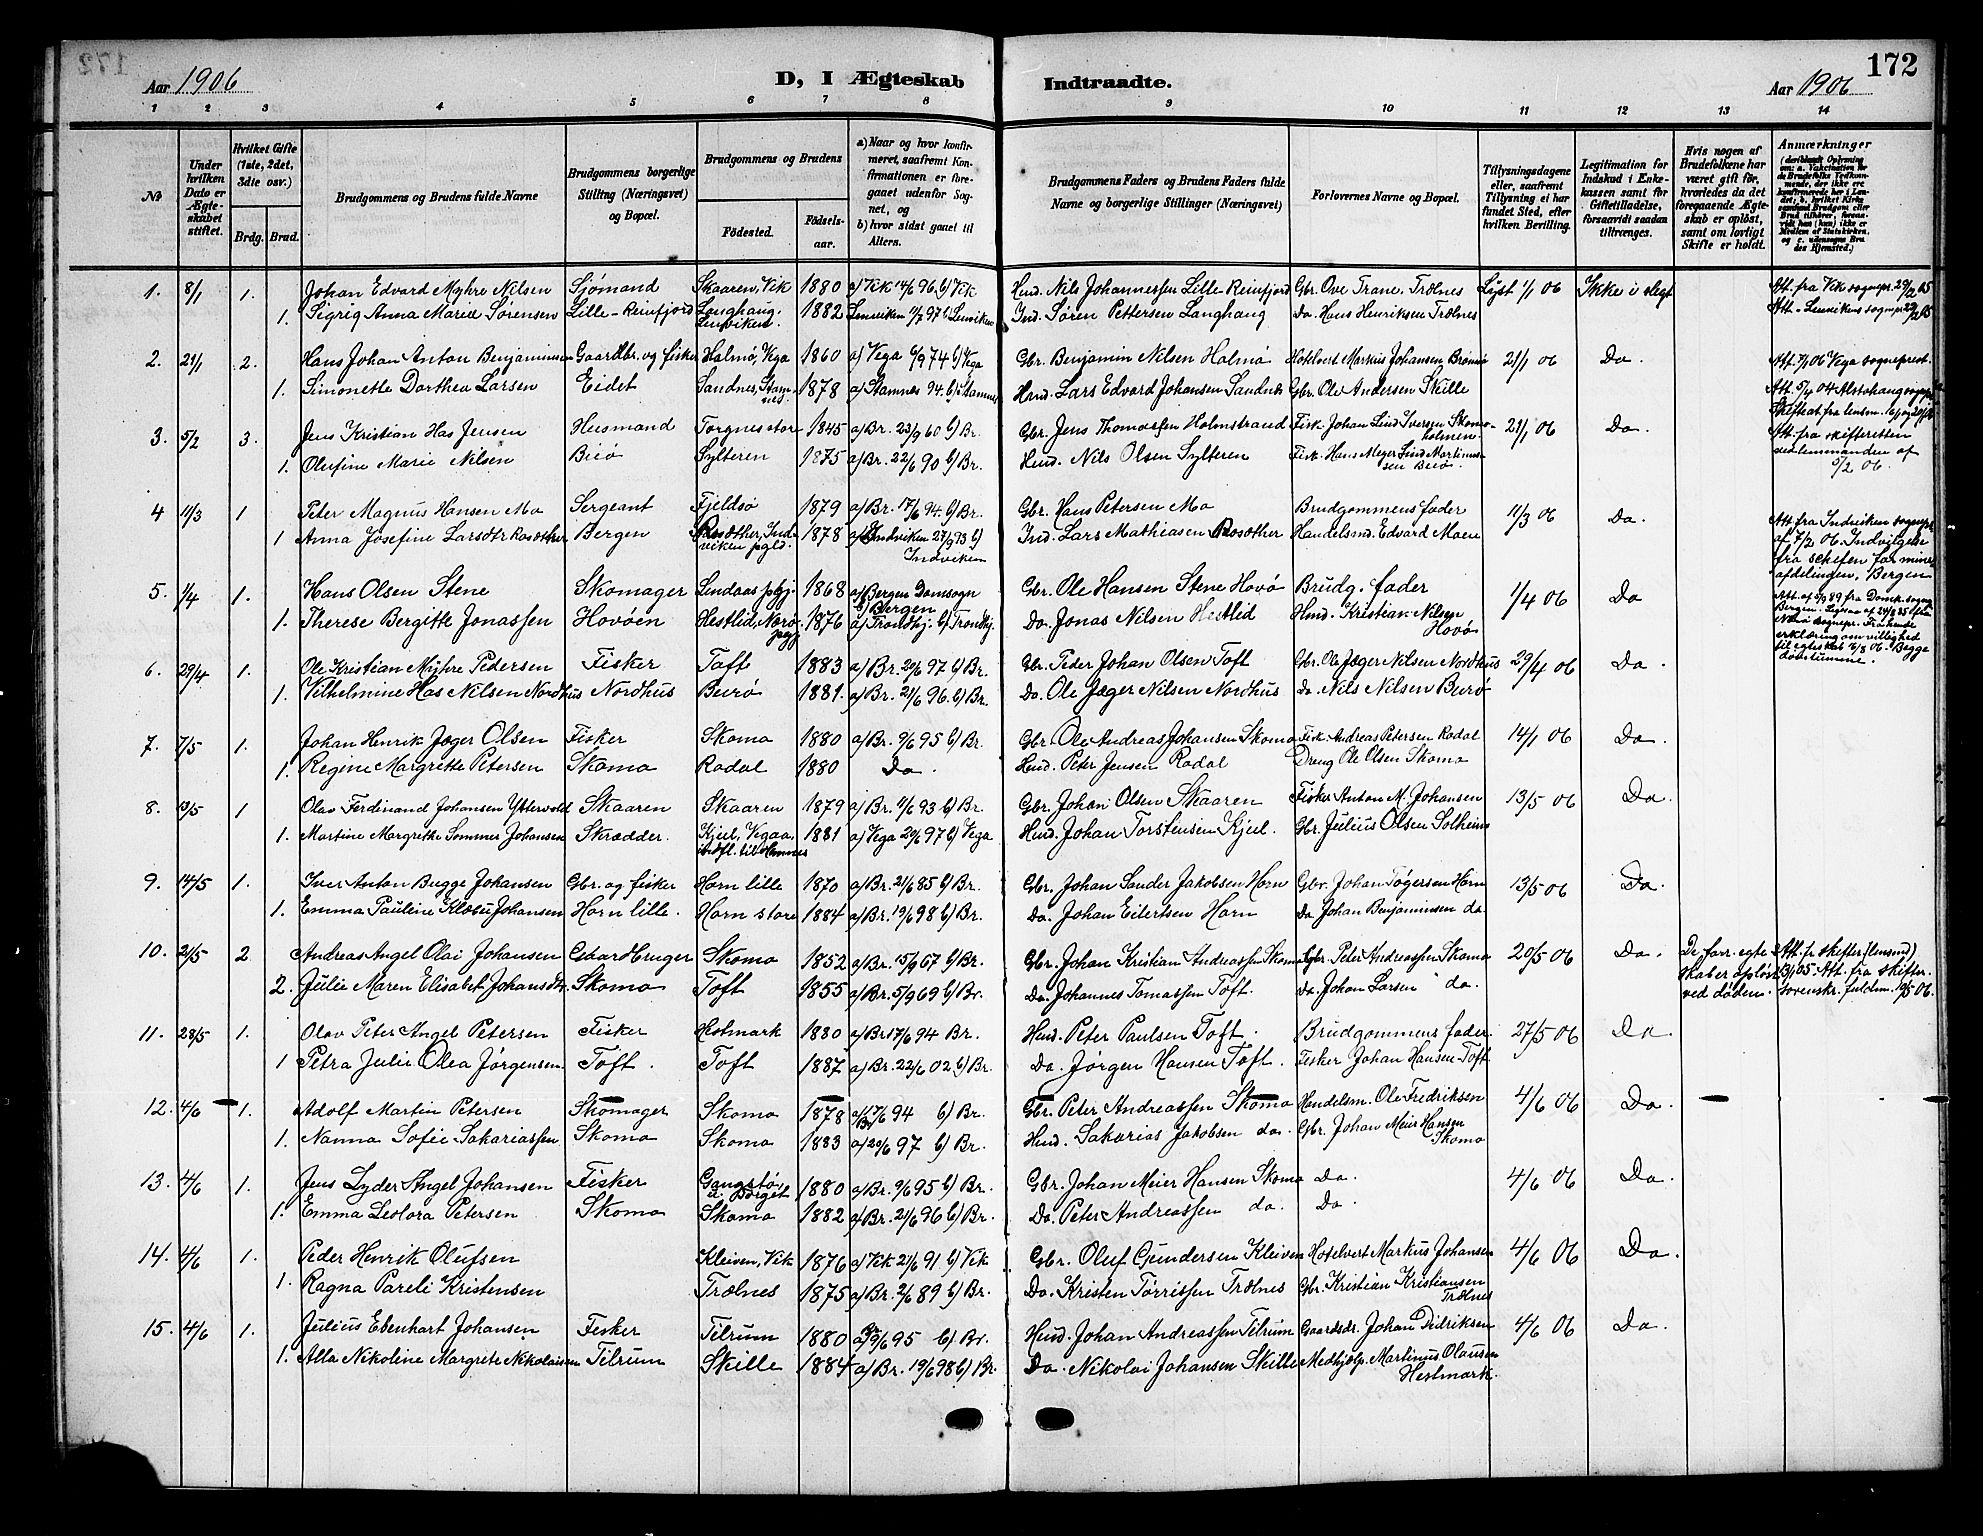 172
Aar 1906
D, I Ægteskab Indtraadte.
Aar 1906
1 2 3 4 5 6 7 8 9 10 11 12 13 14
№
Under hvilken Dato er Ægteskabet stiftet.
Hvilket Gifte (1ste, 2det, 3die osv.)
Brdg. Brud.
Brudgommens og Brudens fulde Navne
Brudgommens borgerlige Stilling (Næringsvei) og Bopæl.
Brudgommens og Brudens
Födested. Födselsaar.
a) Naar og hvor konfirmeret, saafremt Konfirmationen er foregaaet udenfor Sognet, og b) hvor sidst gaaet til Alters.
Brudgommens Faders og Brudens Faders fulde Navne og borgerlige Stillinger (Næringsvei)
Forlovernes Navne og Bopæl.
Tillysningsdagene eller, saafremt Tillysning ei har fundet Sted, efter hvilken Bevilling.
Legitimation for Indskud i Enkekassen samt for Giftetilladelse, forsaavidt saadan tiltrænges.
Hvis nogen af Brudefolkene har været gift för, hvorledes da det foregaaende Ægteskab er oplöst, samt om lovligt Skifte er holdt.
Anmærkninger
1. 8/1 1. Johan Edvard Myhre Nilsen Sjömand Skaaren, Vik 1880 a) Vik 14/6 96. b) Vik Hmd. Nils Johannessen Lille-Reinfjord Gbr. Ove Trane, Trælnes Lyst 1/1 06 Ikke i slegt Att. fra Vik sognepr.
1. Sigrig Anna Marie Sørensen Lille-Reinfjord Langhaug, Lenviken. 1882 Lenviken 11/7 97 b) Lenviken Ind. Søren Pettersen Langhaug Do. Hans Henriksen Trælnes Att. Lenvikens sognepr.
2. 21/1 2. Hans Johan Anton Benjaminsen Gaardbr. og fisker Halmø, Vega 1860 a) Vega 6/9 74 b) Vega Gbr. Benjamin Nilsen Halmø Hotelvert Markus Johansen Brønnø 21/1 06 Do. Att. 7/1 06 Vega sogneprest.
1. Simonette Dorthea Larsen Eidet Sandnes, Stamnes. 1878 a) Stamnes 94. b) Stamnes Hmd. Lars Edvard Johansen Sandnes Gbr. Ole Andersen Skille Att. 5/4 04 Alstahaug sognepr.
3. 5/2 3. Jens Kristian Has Jensen Husmand Torgnes store 1845 a) Br. 23/9 60 b) Br. Gbr. Jens Thomassen Holmstrand Fisk. Johan Lind Iversen Skomoholmen 21/1 06 Do. Att. fra skifteretten
1. Olufine Marie Nilsen Buø Sylteren 1875 a) Br. 22/6 90 b) Br. Hmd. Nils Olsen Sylteren Fisk. Hans Meyer Lind Martinussen Burø. ved lensmanden af 5/2 06.
4 11/3 1 Peter Magnus Hansen Mo Sergeant Fjeldsø 1879 a) Br. 17/6 94. b) Br. Gbr. Hans Petersen Mo Brudgommens fader 11/3 06 Do. Att. fra Indviken sognepr.
1 Anna Josefine Larsdtr Rosöther Bergen Rosöther, Indviken pgld. 1878 a) Indviken 27/9 93 b) Indviken Ind. Lars Mathiasen Rosöther Handelsmd. Edvard Moen af 7/2 06. Indvilgelse fra chefen for mineafdelingen, Bergen
5. 1/4 1. Hans Olsen Stene Skomager Lindaas pgj. 1868 a) Bergen Domsogn b) Bergen Gbr. Ole Hansen Stene Hovø Brudg. fader 1/4 06 Do Att. af 5/3 89 fra Domk. sogn Bergen.
1. Therese Bergitte Jonassen Hovøen Hestlid, Nærø pgj 1876 a) Trondhj. b) Trondhj. Do. Jonas Nilsen Hestlid Hmd. Kristian Nilsen Hovø Nærø sognepr. Fra hende erklæring om villighed til egteskab 16/3 06. Begge døvstumme.
6. 29/4 1. Ole Kristian Myhre Pedersen Fisker Toft 1883 a) Br. 20/6 97 b) Br. Gbr. Peder Johan Olsen Toft Gbr. Ole Jæger Nilsen Nordhus 29/4 06 Do.
1. Vilhelmine Has Nilsen Nordhus Nordhus Burø 1881. a) Br. 21/6 96. b) Br. Do. Ole Jæger Nilsen Nordhus Do. Nils Nilsen Burø
7. 7/5 1. Johan Henrik Jæger Olsen Fisker Skomo 1880 a) Br. 9/6 95 b) Br. Gbr. Ole Andreas Johansen Skomo Fisk. Andreas Petersen Rodal 14/1 06 Do.
1. Regine Margrette Petersen Skomo Rodal 1880 Do. Hmd. Peter Jensen Rodal Dreng Ole Olsen Skomo
8. 13/5 1 Olav Ferdinand Johansen Ytervold Skaaren Skaaren 1879 a) Br. 11/6 93 b) Br. Gbr. Johan Olsen Skaaren Fisker Anton M. Johansen 13/5 06 Do.
1. Martine Margrethe Sommer Johansen Skrædder. Kjul, Vega, indfl. til Hamnes 1881 a) Vega 20/6 97 b) Vega Hmd. Johan Torstensen Kjul. Gbr. Julius Olsen Solheim
9. 14/5 1. Iver Anton Bugge Johansen Gbr. og fisker Horn lille 1870 a) Br. 21/6 85 b) Br. Gbr. Johan Sander Jakobsen Horn Gbr. Johan Tøgersen Horn 13/5 06 Do.
1. Emma Pauline Klæbu Johansen Horn lille. Horn store 1884 a) Br. 19/6 98 b) Br. Do. Johan Eilertsen Horn Do. Johan Benjaminsen do.
10. 21/5 2 Andreas Angel Olai Johansen Gaardbruger Skomo 1852 a) Br. 15/9 67 b) Br. Gbr. Johan Kristian Andreassen Skomo Gbr. Peter Andreassen Skomo 20/5 06 Do. De forr. egteskaber opløst ved døden. Att. fr skifter (lensmd) 05. Att. fra skifter. fuldm. 19/5 06.
2. Julie Maren Elisabet Johansdtr. Skomo Toft 1855 a) Br. 5/9 69 b) Br. Do. Johannes Tomassen Toft. Do. Johan Larsen do.
11. 28/5 1. Olav Peter Angel Petersen Fisker Hestmark 1880 a) Br 17/6 94 Br. Hmd. Peter Paulsen Toft. Brudgommens fader. 27/5 06 Do
1 Petra Julie Olea Jørgensen. Toft. Toft 1887 a) Br. 22/6 02 b) Br. Do. Jørgen Hansen Toft. Fisker Johan Hansen Toft
12. 4/6 1. Adolf Martin Petersen Skomager Skomo 1878 a) Br 17/6 94 b) Br. Gbr. Peter Andreassen Skomo Handelsm. Ole Fredriksen 4/6 06 Do.
1. Nanna Sofie Sakariassen Skomo Skomo 1883 a) 20/6 97 b) Br. Hmd. Sakarias Jakobsen do. Gbr. Johan Meier Hansen Skomo
13. 4/6 1. Jens Lyder Angel Johansen Fisker Gangstø, u. Borget 1880 a) Br. 9/6 95 b) Br. Gbr. Johan Meier Hansen Skomo Do. 4/6 06 Do.
1. Emma Leolora Petersen Skomo Skomo 1882 a) Br. 21/6 96 b) Br. Do. Peter Andreassen do. Do.
14. 4/6 1. Peder Henrik Olufsen Kleiven, Vik 1876 a) Vik 21/6 91 b) Vik Gbr. Oluf Gundersen Kleiven Hotelvert Markus Johansen 4/6 06 Do.
1. Ragna Pareli Kristensen Trælnes 1875 a) Br. 2/6 89 b) Br. Do. Kristen Tørrissen Trælnes Gbr. Kristian Kristiansen Trælnes
15. 4/6 1. Julius Ebenhart Johansen Fisker Tilrum 1880 a) 9/6 95 b) Br. Hmd. Johan Andreassen Tilrum Gaardsdr. Johan Didriksen 4/6 06 Do.
1. Alla Nikoline Margrete Nikolaisen Tilrum Skille 1884 a) Br. 19/6 98 b) Br. Do. Nikolai Johansen Skille Medhjelp. Martinus Olausen Hestmark.